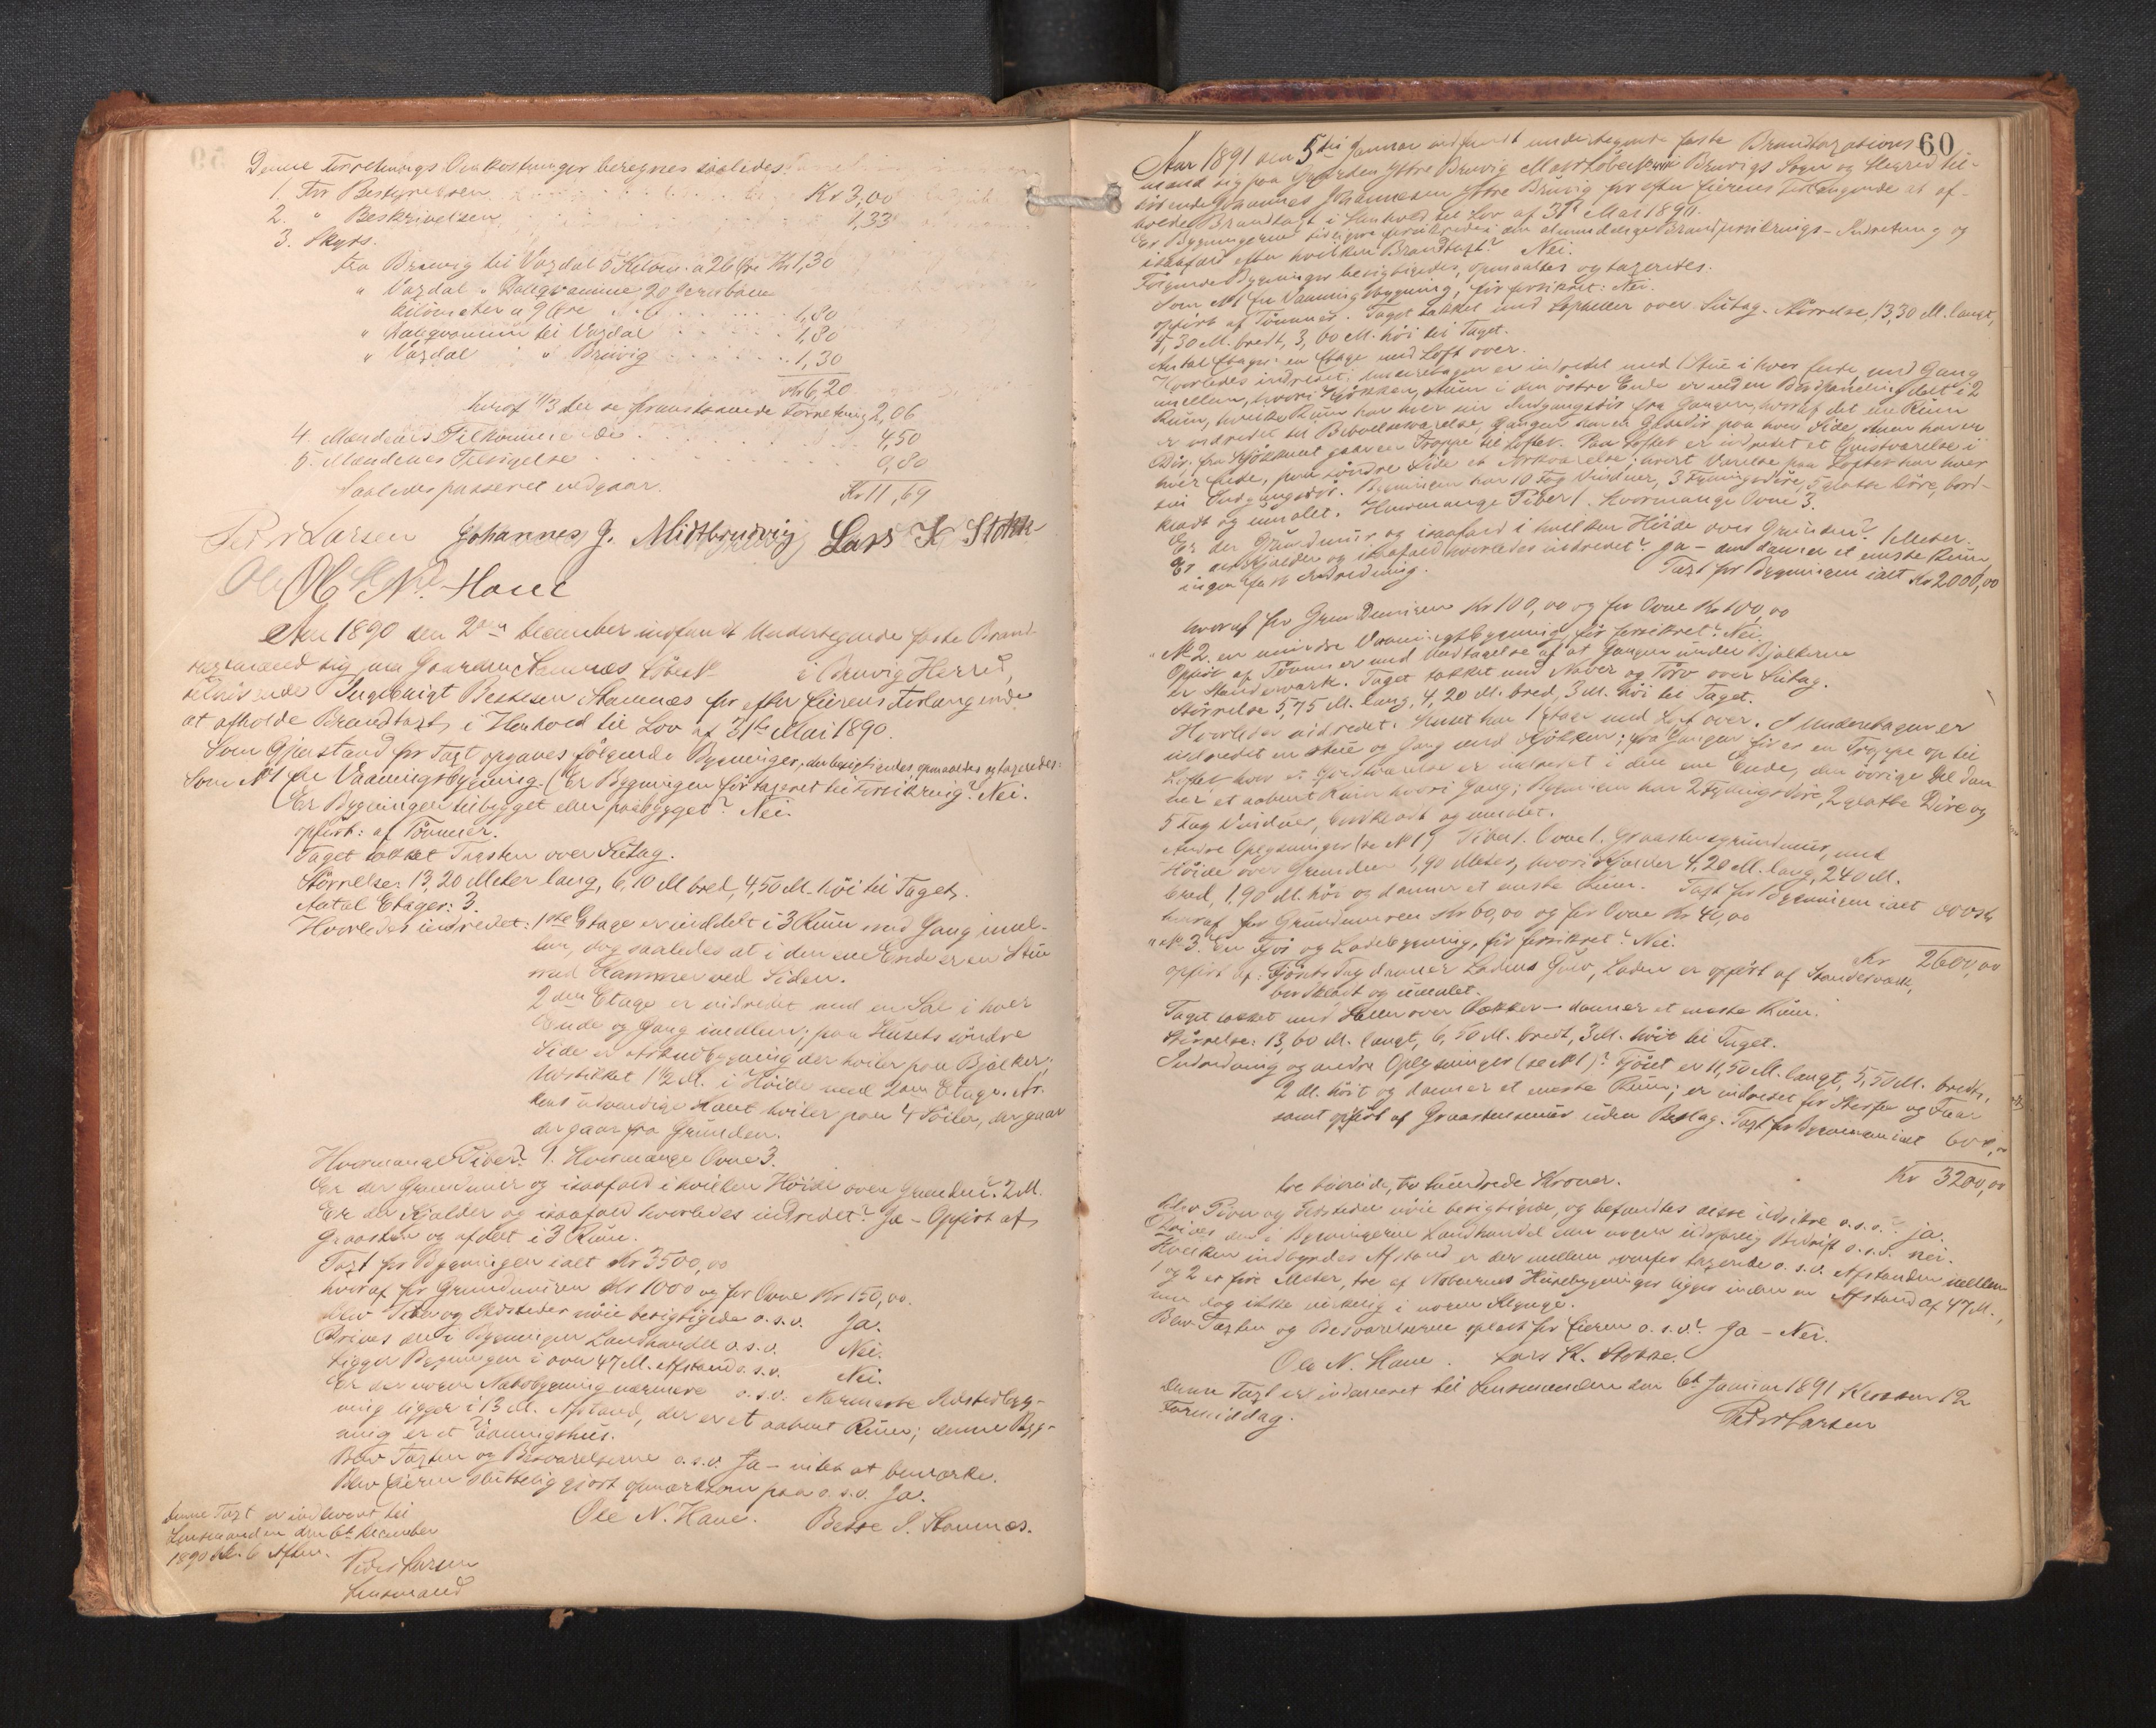 Denne Forretnings Omkostninger beregnes saaledes:
1. For Bestyrelsen Kr 3,00
2. " Beskrivelsen 1,33
3. Skyds.
fra Bruvig til Vaxdal 5 Kilom. a 26 Øre Kr 1,30
" Vaxdal " Dalegrammne 20 Jernbane
kilometer a 9 Øre 1,80
" til Vaxdal 1,80
" Vaxdal " Bruvig 1,30
Kr 6,20
heraf 1/3 del se Forretning 2,06
4. Mændenes Tilkommende 4,50
5. Mændenes Tilsigelse 0,80
Saaledes passeret vedgaar. Kr 11,69
Peder Larsen Johannes J. Midtbruvig Lars K Stokke
Ole N. Hane
Aar 1890 den 2den December indfandt Undertegnede faste Brand-
taxtmænd sig paa Gaarden Stamnæs Løbe No i Bruvig Herred,
tilhørende Bessesen Stamnæs for efter Eierens Forlangende
at afholde Brandtaxt, i Henhold til Lov af 31te Mai 1890.
Som Gjenstand for Taxt opgaves følgende Bygninger, der besigtigedes, opmaaltes og taxeredes:
Som No 1 En Vaaningsbygning. (Er Bygningen før taxeret til Forsikring? Nei.
(Er Bygningen tilbygget eller paabygget? Nei.
opført: af Tømmer.
Taget tækket Tagsten over Sutag.
Størrelse: 13,20 Meter lang, 6,10 M bred, 4,50 M. høi til Taget.
Antal Etager: 3.
Hvorledes indredet: 1ste Etage er inddelt i 3 Rum med Gang imel-
lem, dog saaledes at i den ene Ende er en Stue
med Kammer ved Siden.
2den Etage er indredet med en Sal i hver
Ende og Gang imellem; paa Husets søndre
Side er Arkudbygning der hviler paa Bjælker,
udstikket 1 1/2 M. i Høide med 2den Etage. Ar-
kens udvendige Kant hviler paa 4 Søiler, der gaar
der gaar fra Grunden.
Hvormange Piber? 1. Hvormange Ovne 3.
Er der Grundmur og isaafald i hvilken Høide over Grunden? 2 M.
Er der Kjælder og isaafald hvorledes indredet? Ja – Opført af
Graasten og afdelt i 3 Rum.
Taxt for Bygningen ialt Kr 3500,00
hvoraf for Grundmuren Kr 1000 og for Ovne Kr 150,00.
Blev Piber og Ildsteder nøie besigtigede o.s.v. Ja.
Drives der i Bygningen Landhandel o.s.v. Nei.
Ligger Bygningen i over 47 M. Afstand o.s.v. Nei.
Er der nogen Nabobygning nærmere o.s.v. Nærmeste Ildstedbyg-
ning ligger i 13 M. Afstand, der er et aabent Rum; denne Byg-
ning er et Vaaningshus.
Blev Taxten og Besvarelserne o.s.v. Ja – intet at bemærke.
Blev Eieren sluttelig gjort opmærksom paa o.s.v. Ja.
Ole N. Hane. Besse I. Stamnæs.
Denne Taxt er indleveret til
Lensmanden den 6te December
1890 kl. 6 Aften.
Peder Larsen
Lensmand
60
Aar 1891 den 5te Januar indfandt undertegnede faste Brandtaxations-
mænd sig paa Gaarden Ytre Bruvig Matr Løbe i Bruvigs Sogn og Herred til-
hørende Johannes Johannesen Ytre Bruvig for efter Eierens Forlangende at af-
holde Brandtaxt i Henhold til Lov af 31te Mai 1890.
Er Bygningerne tidligere forsikrede i den almindelige Brandforsikrings-Indretning og
isaafald efter hvilken Brandtaxt? Nei.
Følgende Bygninger besigtigedes, opmaaltes og taxeredes:
Som No 1 En Vaaningsbygning, før forsikret: Nei.
opført af Tømmer. Taget tækket med over Sutag. Størrelse, 13,30 M. langt,
5,30 M. bredt, 3,60 M. høi til Taget.
Antal Etager: en Etage med Loft over.
Hvorledes indredet: Underetagen er indredet med 1 Stue i hver Ende, med Gang
imellem, hvori Kjøkken, Stuen i den østre Ende er ved en Bordpaneling delt i 2
Rum, hvilke Rum har hver sin Indgangsdør fra Gangen, hvoraf det ene Rum
er indredet til Beboelsesværelse, Gangen har en Gadedør paa hver Side, Stuen har en
Dør, fra Kjøkkenet gaar en Trappe til Loftet. Paa Loftet er indredet et Gavlværelse i
hver Ende, paa søndre Side et Arkværelse; hvert Værelse paa Loftet har hver
sin Indgangsdør. Bygningen har 10 Fag Vinduer, 3 Fyldingsdøre, 5 glatte Døre, bord-
klædt og umalet. Hvormange Piber 1. Hvormange Ovne 3.
Er der Grundmur og isaafald i hvilken Høide over Grunden? 1 Meter.
Er der Kjælder og isaafald hvorledes indredet? Ja – den danner et eneste Rum
ingen fast Indredning. Taxt for Bygningen ialt Kr 2000,00
hvoraf for Grundmuren Kr 100,00 og for Ovne Kr 100,00
" No 2. en mindre Vaaningsbygning, før forsikret? Nei.
Opført af Tømmer med Undtagelse af at Gangen under Bjælkerne
er Standerværk. Taget tækket med Næver og Tørv over Sutag.
Størrelse 5,75 M. lang, 4,20 M. bred, 3 M. høi til Taget.
Hvorledes indredet: Huset har 1 Etage med Loft over. I Underetagen er
indredet en Stue og Gang med Kjøkken; fra Gangen fører en Trappe op til
Loftet hvor et Gavlværelse er indredet i den ene Ende, den øvrige Del dan-
ner et aabent Rum hvori Gang; Bygningen har 2 Fyldingsdøre, 2 glatte Døre og
5 Fag Vinduer, bordklædt og umalet.
Andre Oplysninger (se No 1) Piber 1. Ovne 1. Graastensgrundmur, med
Høide over Grunden 1,90 Meter, hvori Kjælder 4,20 M. lang, 2,40 M.
bred, 1,90 M. høi og danner et eneste Rum. Taxt for Bygningen ialt
hvoraf for Grundmuren Kr 60,00 og for Ovne Kr 40,00
" No 3. En Fjøs og Ladebygning, før forsikret? Nei. Kr 2600,00
opført af: Fjøsets Tag danner Ladens Gulv, Laden er opført af Standerværk,
bordklædt og umalet.
Taget tækket med Heller over Lækter – danner et eneste Rum.
Størrelse: 13,60 M. langt, 6,50 M. bredt, 3 M. høit til Taget.
Indredning og andre Oplysninger (se No 1)? Fjøset er 11,50 M. langt, 5,50 M. bredt,
2 M. høit og danner et eneste Rum; er indredet for Storfæ og Faar
samt opført af Graastensmur uden Beslag. Taxt for Bygningen ialt 600,00
tre tusinde, to hundrede Kroner. Kr 3200,00
Blev Piber og Ildsteder nøie besigtigede, og befandtes disse ildsikre o.s.v.? ja.
Drives der i Bygningerne Landhandel eller nogen ildsfarlig Bedrift o.s.v. nei.
Hvilken indbyrdes Afstand er der mellem ovenfor taxerede o.s.v. Afstanden mellem
1 og 2 er fire Meter, tre af Naboernes Husebygninger ligger inden en Afstand af 47 M.,
men dog ikke virkelig i nogen Klynge.
Blev Taxten og Besvarelserne oplæst for Eieren o.s.v? Ja – Nei.
Ole N. Hane. Lars K. Stokke.
Denne Taxt er indleveret til Lensmanden den 6te Januar 1891 Klokken 12
Formiddag.
Peder Larsen